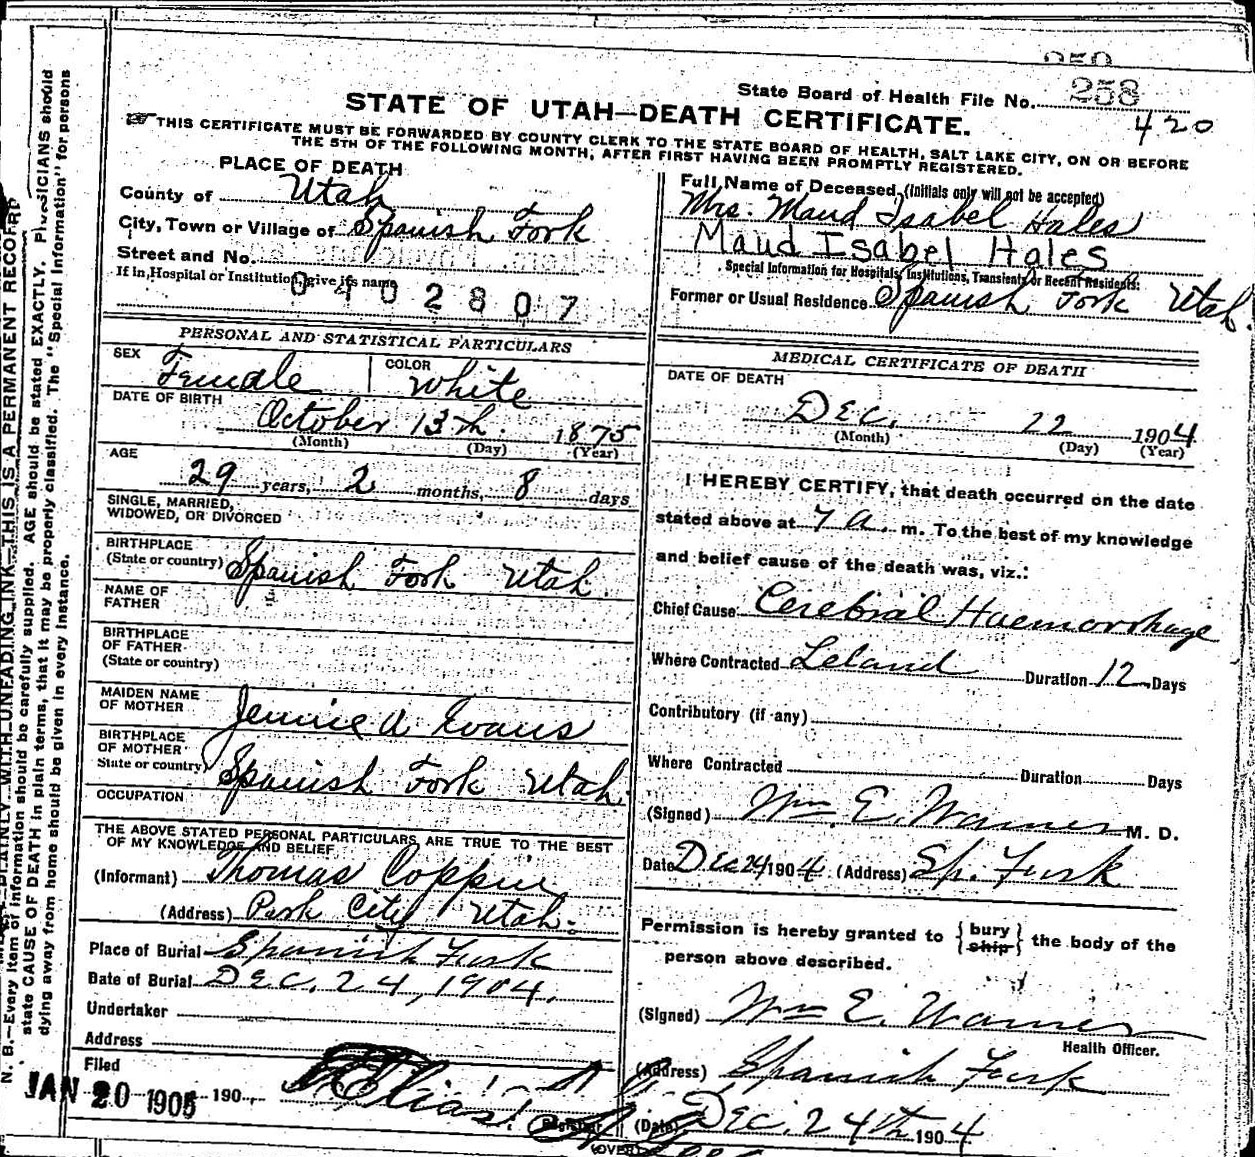 258
State Board of Health File No. 258
420
STATE OF UTAH—DEATH CERTIFICATE.
THIS CERTIFICATE MUST BE FORWARDED BY COUNTY CLERK TO THE STATE BOARD OF HEALTH, SALT LAKE CITY, ON OR BEFORE
THE 5TH OF THE FOLLOWING MONTH, AFTER FIRST HAVING BEEN PROMPTLY REGISTERED.
PLACE OF DEATH
County of Utah
City, Town or Village of Spanish Fork
Street and No.
If in Hospital or Institution, give its name
0402807
Full Name of Deceased (Initials only will not be accepted)
Mrs. Maud Isabel Hales
Maud Isabel Hales
Special Information for Hospitals, Institutions, Transients or Recent Residents:
Former or Usual Residence Spanish Fork Utah.
PERSONAL AND STATISTICAL PARTICULARS
SEX Female
COLOR White
DATE OF BIRTH
October 13th. 1875
(Month) (Day) (Year)
AGE
29 years, 2 months, 8 days
SINGLE, MARRIED,
WIDOWED, OR DIVORCED
BIRTHPLACE
(State or country) Spanish Fork Utah.
NAME OF
FATHER
BIRTHPLACE
OF FATHER
(State or country)
MAIDEN NAME
OF MOTHER Jennie A Evans
BIRTHPLACE
OF MOTHER
State or country) Spanish Fork Utah.
OCCUPATION
THE ABOVE STATED PERSONAL PARTICULARS ARE TRUE TO THE BEST
OF MY KNOWLEDGE AND BELIEF
(Informant) Thomas Coppin
(Address) Park City Utah.
Place of Burial Spanish Fork
Date of Burial DEC. 24, 1904.
Undertaker
Address
Filed
JAN 20 1905 190
Registrar
(OVER)
MEDICAL CERTIFICATE OF DEATH
DATE OF DEATH
DEC. 22 1904
(Month) (Day) (Year)
I HEREBY CERTIFY, that death occurred on the date
stated above at 7 a. m. To the best of my knowledge
and belief cause of the death was, viz.:
Chief Cause Cerebral Haemorrhage
Where Contracted Leland Duration 12 Days
Contributory (if any)
Where Contracted Duration Days
(Signed) Wm. E. Warner M. D.
Date Dec 24 1904 (Address) Sp. Fork
Permission is hereby granted to { bury
ship } the body of the
person above described.
(Signed) Wm E. Warner
Health Officer.
(Address) Spanish Fork
(Date) Dec. 24th 1904
N. B.—Every item of information should be carefully supplied. AGE should be stated EXACTLY. PHYSICIANS should
state CAUSE OF DEATH in plain terms, that it may be properly classified. The "Special Information" for persons
dying away from home should be given in every instance.
WITH UNFADING INK—THIS IS A PERMANENT RECORD